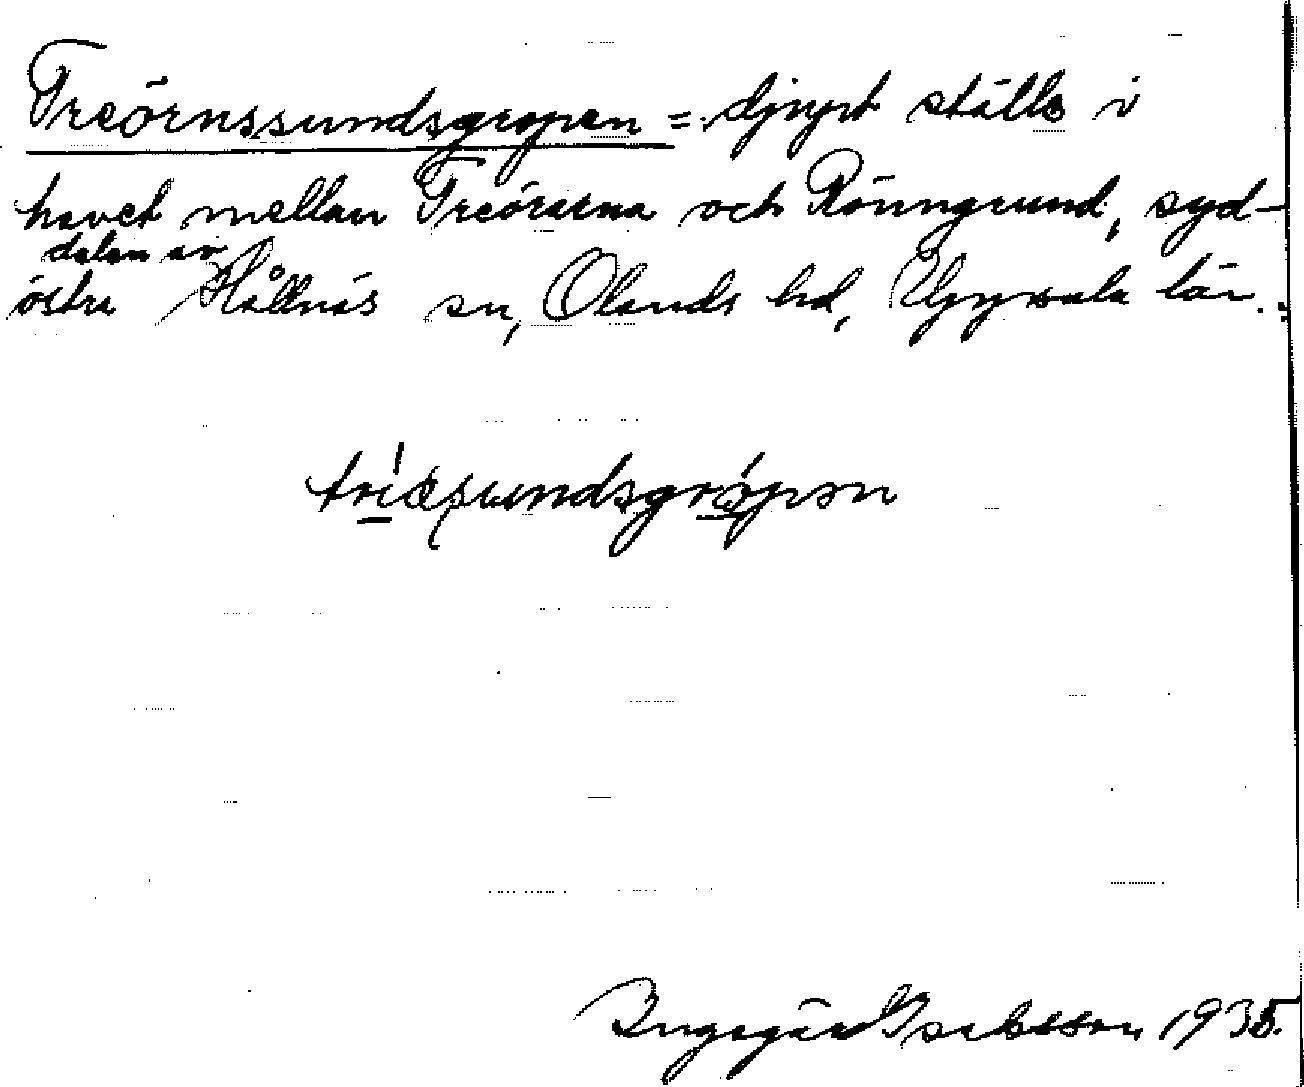 Treörnssundsgropen = djupt ställe i
havet mellan Treörarna och Rönngrund, syd-
östra delen av Hållnäs sn, Olands hd, Uppsala län.
Ingegärd Isaksson 1935.